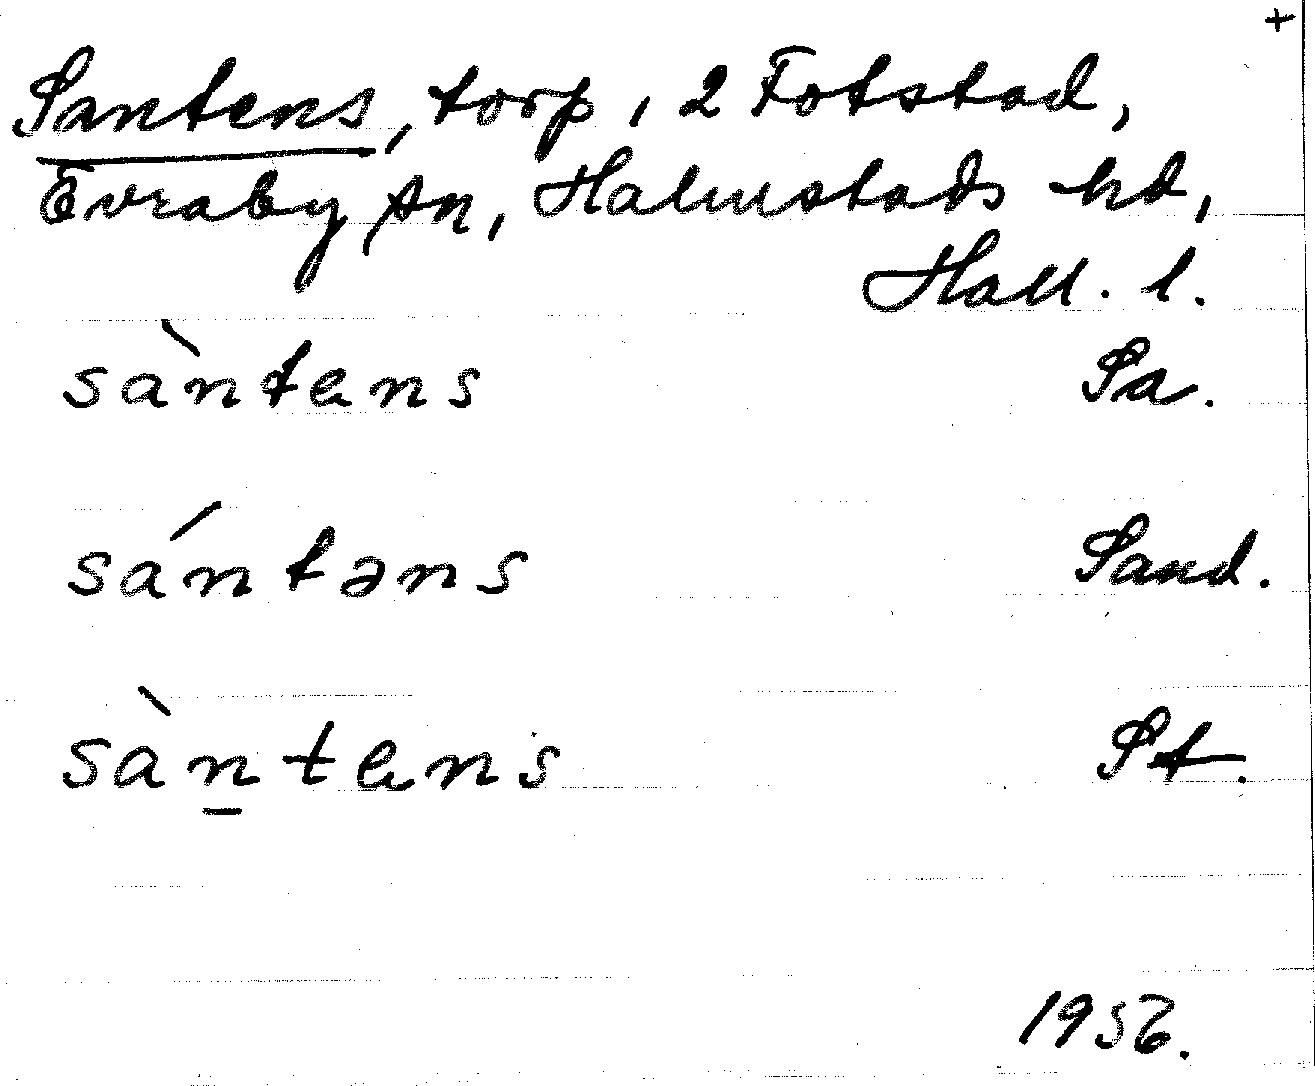 +
Santens, torp, 2 Fotstad,
Enraby sn, Halmstads hd,
Hall. l.
sàntens Sa.
sántəns Sand.
sàn̲tens St.
1956.